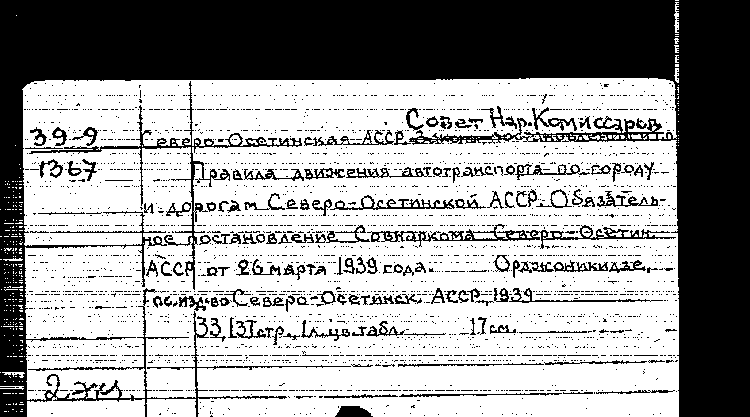 Совет Нар. Комиссаров
39-9 Северо-Осетинская АССР. Законы, постановления и т.п.
1367 Правила движения автотранспорта по городу
и дорогам Северо-Осетинской АССР. Обязатель-
ное постановление Совнаркома Северо-Осетин.
АССР от 26 марта 1939 года. Орджоникидзе,
Гос. изд-во Северо-Осетинск. АССР, 1939
33, [3] стр., 1 л. цв. табл. 17 см.
2 экз.